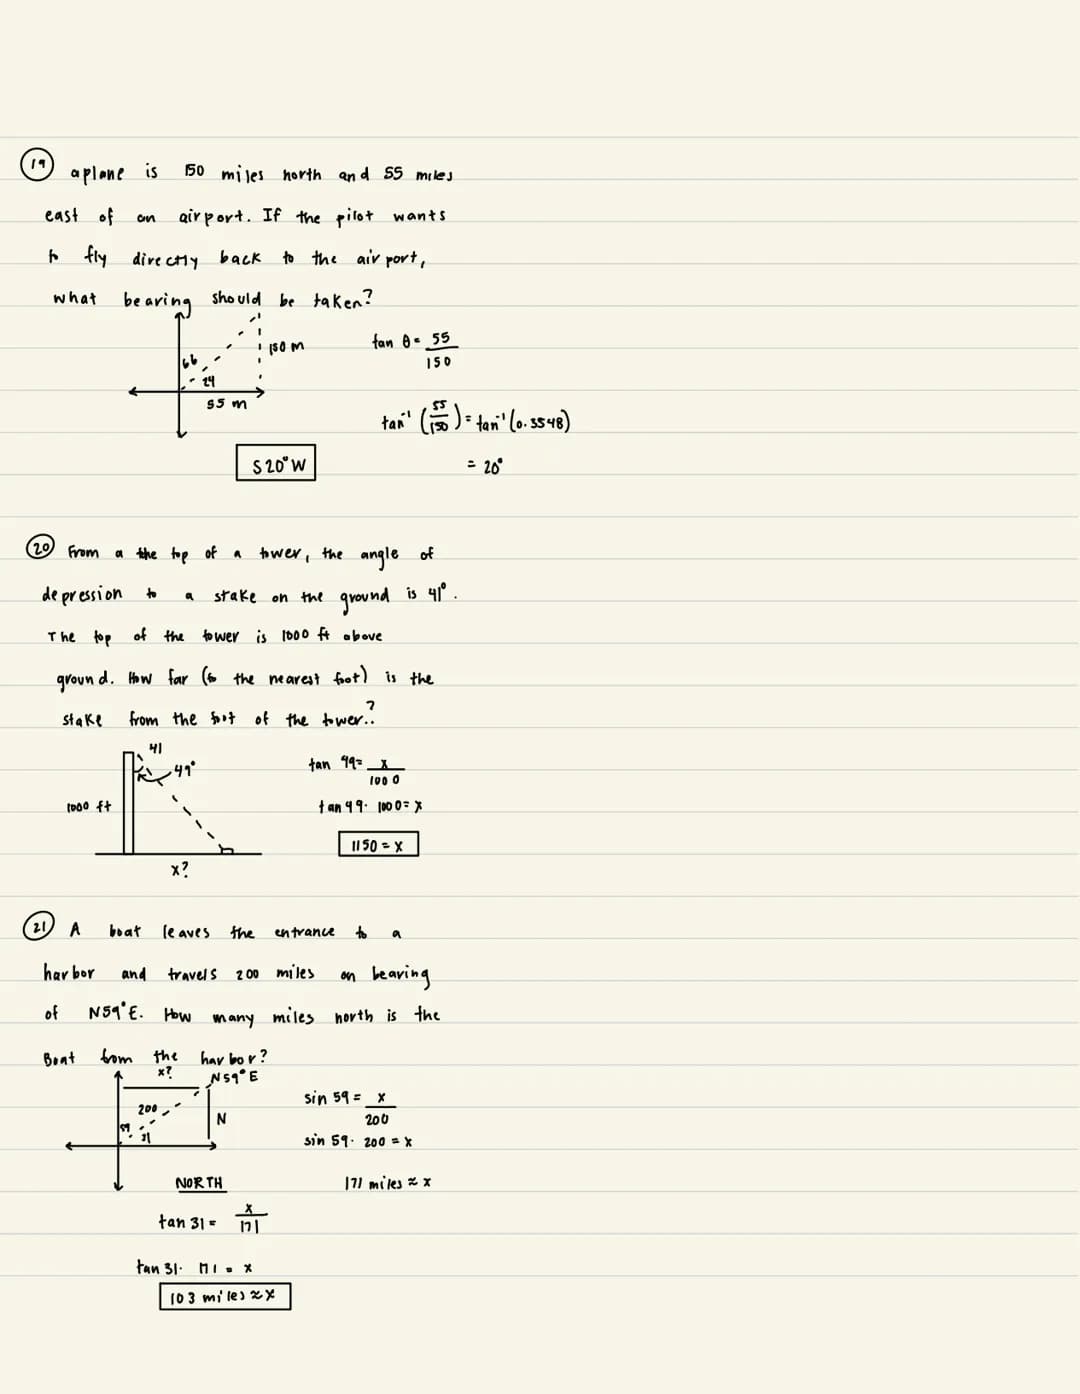 19 a plane is 150 miles north and 55 miles
east of an airport. If the pilot wants
to fly directly back to the airport,
what bearing should be taken?
66
24
150 m
55 m
tan θ = 55
150
tan⁻¹ (55/150) = tan⁻¹ (0.3548)
= 20°
S 20° W
20 From a the top of a tower, the angle of
depression to a stake on the ground is 41°.
The top of the tower is 1000 ft above
ground. How far (to the nearest foot) is the
stake from the foot of the tower..?
41
49°
1000 ft
x?
tan 49 = x
1000
tan 49 · 1000 = x
1150 = x
21 A boat leaves the entrance to a
harbor and travels 200 miles on bearing
of N59°E. How many miles north is the
Boat from the harbor?
x?
N59°E
200
59
31
N
sin 59 = x
200
sin 59 · 200 = x
171 miles ≈ x
NORTH
tan 31 = x
171
tan 31 · 171 = x
103 miles ≈ x